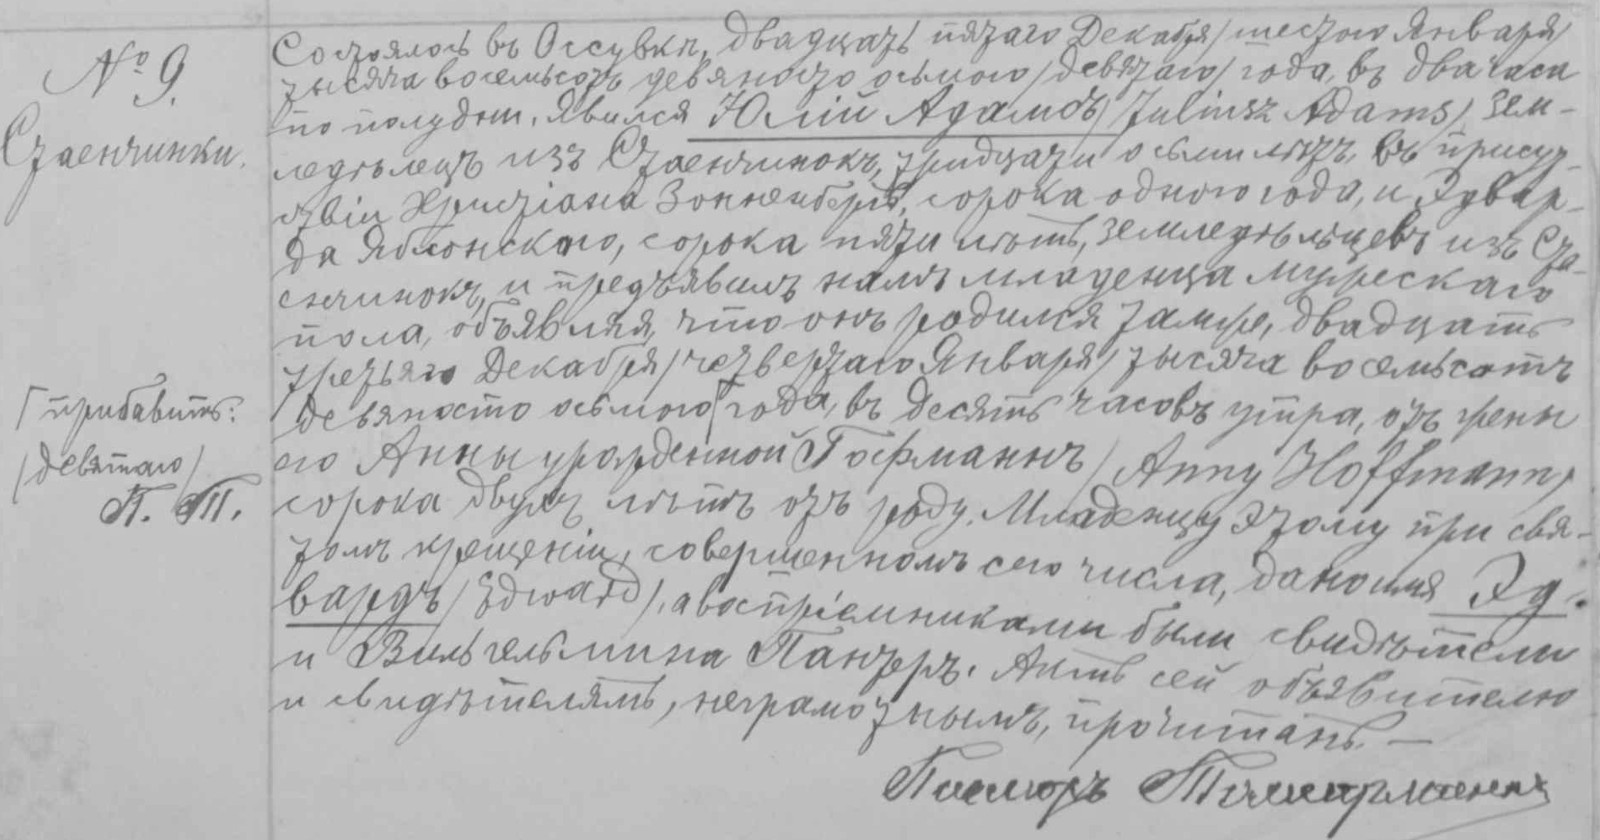 № 9.
Стаенчинки.
Состоялось въ Оссувкѣ, двадцать пятаго Декабря /шестого Января/
тысяча восемьсотъ девяносто осьмого /девятаго/ года, въ два часа
по полудни. Явился Юлій Адамсъ /Juliusz Adams/ зем-
ледѣлецъ изъ Стаенчинокъ, тридцати осьми лѣтъ, въ присут-
ствіи Христіана Зонненберга, сорока одного года, и Эдуар-
да Яблонскаго, сорока пяти лѣтъ, земледѣльцевъ изъ Ста-
енчинокъ, и предъявилъ намъ младенца мужескаго
пола, объявляя, что онъ родился тамже, двадцать
третьяго Декабря /четвертаго Января/ тысяча восемьсотъ
девяносто осьмого Г года, въ десять часовъ утра, отъ жены
его Анны урожденной Гофманнъ /Anny Hoffmann/
сорока двухъ лѣтъ отъ роду. Младенцу этому при свя-
томъ крещеніи, совершенномъ сего числа, дано имя Эд-
вардъ /Edward/, а воспріемниками были свидѣтели
и Вильгельмина Панцеръ. Актъ сей объявителю
и свидѣтелямъ, неграмотнымъ, прочитанъ. —
Г прибавить:
/девятаго/
П. Т.
Пасторъ